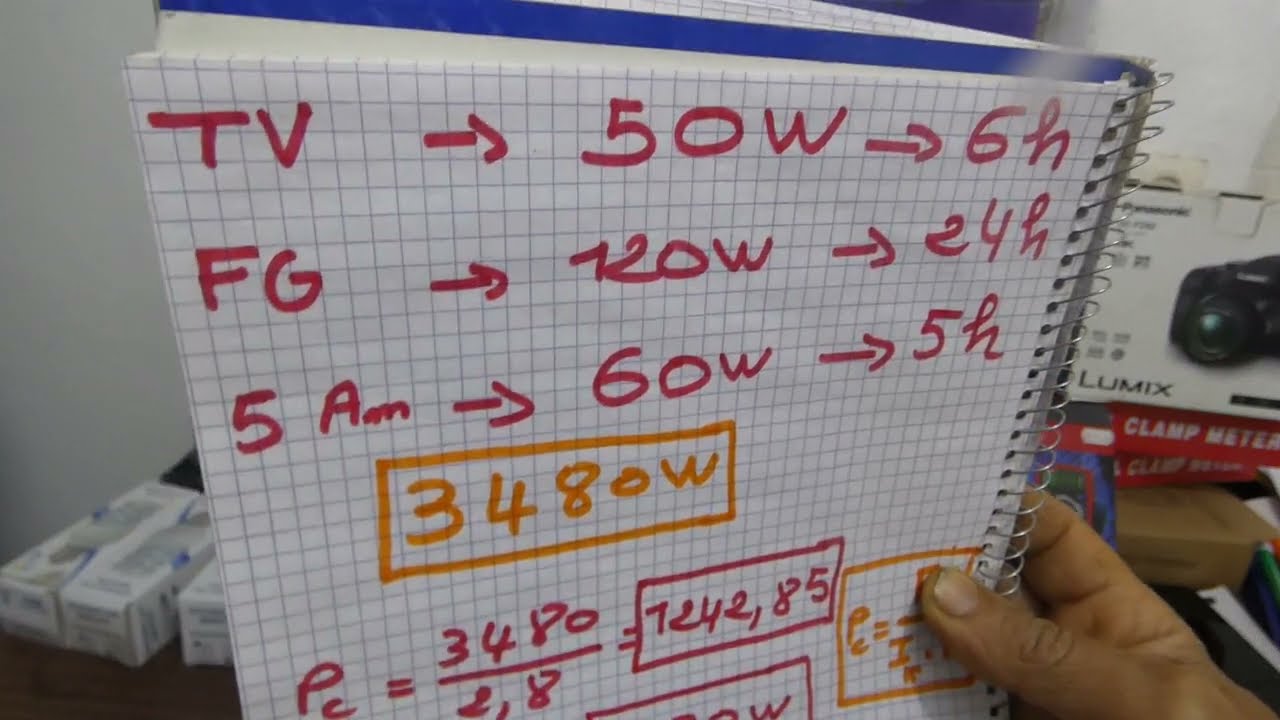 TV → 50W → 6h
FG → 120W → 24h
5 Am → 60W → 5h
3480W
Pc = 3480 / 2,8 = 1242,85
Pc =
Panasonic
LUMIX
CLAMP METER
CLAMP METER